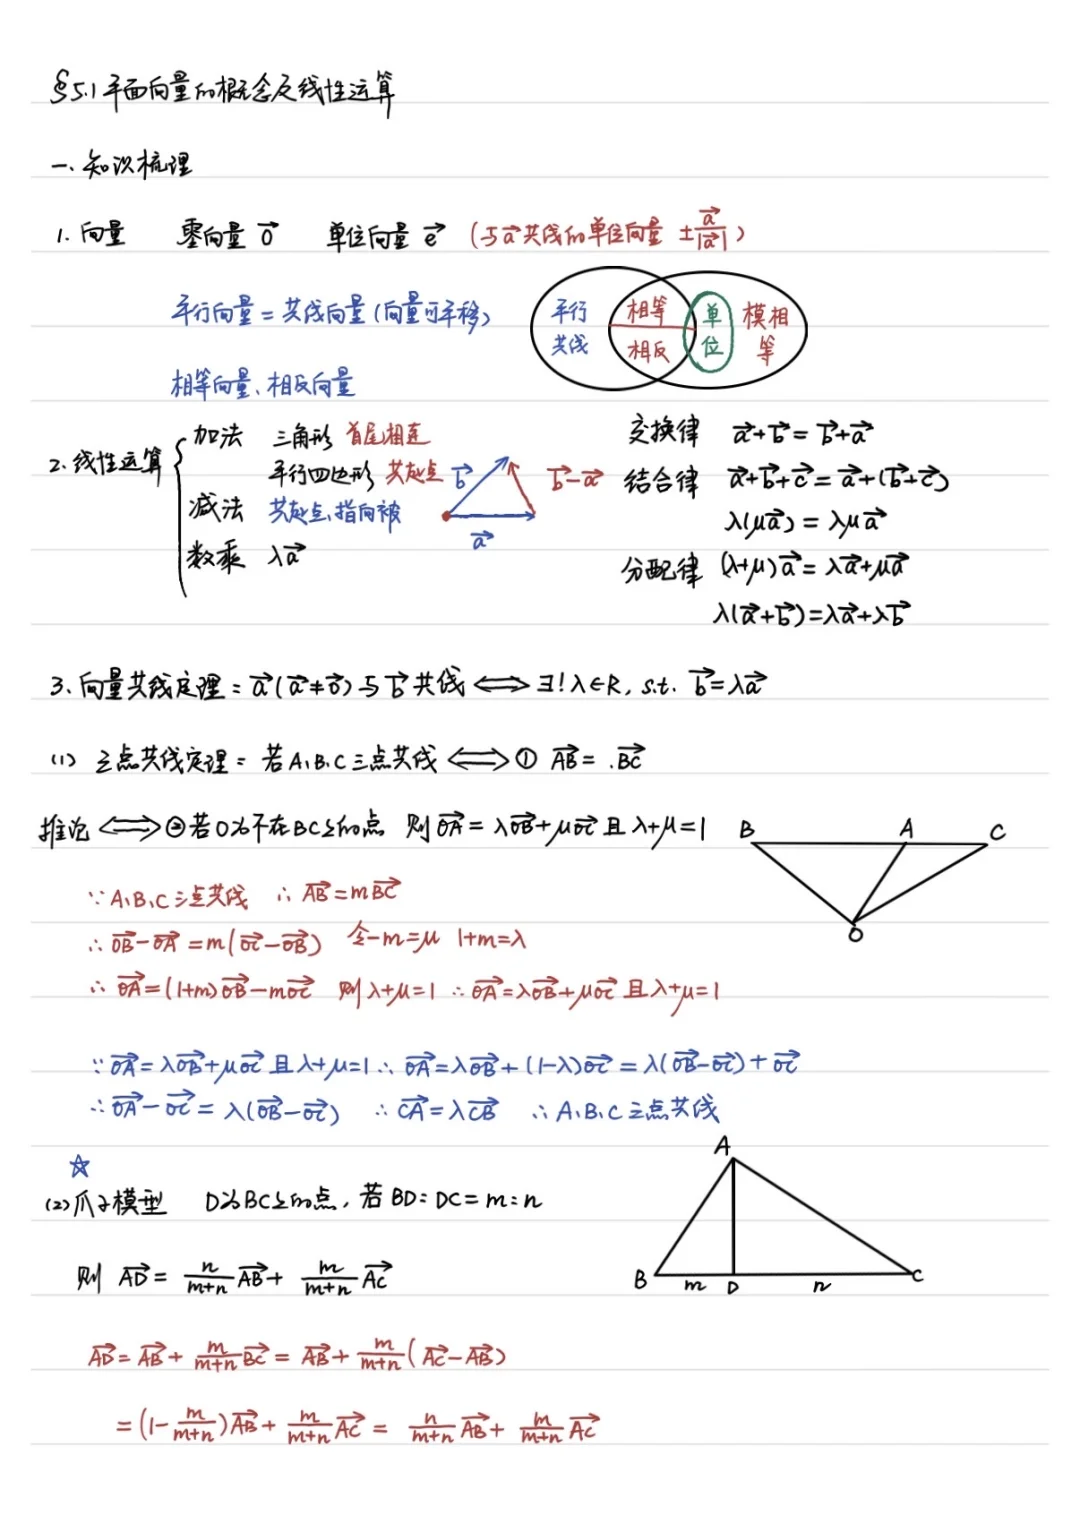 §5.1 平面向量的概念及线性运算
一、知识梳理
1. 向量 零向量 $\vec{0}$ 单位向量 $\vec{e}$ (与$\vec{a}$共线的单位向量 $\pm\frac{\vec{a}}{|\vec{a}|}$)
平行向量=共线向量(向量可平移)
平行 共线 相等 相反 单位 模相等
相等向量、相反向量
2. 线性运算
加法 三角形 首尾相连
平行四边形 共起点
减法 共起点,指向被
数乘 $\lambda\vec{a}$
$\vec{b}$ $\vec{b}-\vec{a}$
$\vec{a}$
交换律 $\vec{a}+\vec{b}=\vec{b}+\vec{a}$
结合律 $\vec{a}+\vec{b}+\vec{c}=\vec{a}+(\vec{b}+\vec{c})$
$\lambda(\mu\vec{a})=\lambda\mu\vec{a}$
分配律 $(\lambda+\mu)\vec{a}=\lambda\vec{a}+\mu\vec{a}$
$\lambda(\vec{a}+\vec{b})=\lambda\vec{a}+\lambda\vec{b}$
3. 向量共线定理: $\vec{a}(\vec{a}\neq\vec{0})$与$\vec{b}$共线 ⟺ ∃!λ∈R, s.t. $\vec{b}=\lambda\vec{a}$
(1) 三点共线定理: 若A、B、C三点共线 ⟺ ① $\overrightarrow{AB}=.\overrightarrow{BC}$
推论 ⟺ ②若O为不在BC上的点 则$\overrightarrow{OA}=\lambda\overrightarrow{OB}+\mu\overrightarrow{OC}$且λ+μ=1
B A C
O
∵A、B、C三点共线 ∴$\overrightarrow{AB}=m\overrightarrow{BC}$
∴$\overrightarrow{OB}-\overrightarrow{OA}=m(\overrightarrow{OC}-\overrightarrow{OB})$ 令-m=μ 1+m=λ
∴$\overrightarrow{OA}=(1+m)\overrightarrow{OB}-m\overrightarrow{OC}$ 则λ+μ=1 ∴$\overrightarrow{OA}=\lambda\overrightarrow{OB}+\mu\overrightarrow{OC}$且λ+μ=1
∵$\overrightarrow{OA}=\lambda\overrightarrow{OB}+\mu\overrightarrow{OC}$且λ+μ=1 ∴$\overrightarrow{OA}=\lambda\overrightarrow{OB}+(1-\lambda)\overrightarrow{OC}=\lambda(\overrightarrow{OB}-\overrightarrow{OC})+\overrightarrow{OC}$
∴$\overrightarrow{OA}-\overrightarrow{OC}=\lambda(\overrightarrow{OB}-\overrightarrow{OC})$ ∴$\overrightarrow{CA}=\lambda\overrightarrow{CB}$ ∴A、B、C三点共线
☆
(2)爪子模型 D为BC上的点, 若BD:DC=m:n
则 $\overrightarrow{AD}=\frac{n}{m+n}\overrightarrow{AB}+\frac{m}{m+n}\overrightarrow{AC}$
A
B m D n C
$\overrightarrow{AD}=\overrightarrow{AB}+\frac{m}{m+n}\overrightarrow{BC}=\overrightarrow{AB}+\frac{m}{m+n}(\overrightarrow{AC}-\overrightarrow{AB})$
$=(1-\frac{m}{m+n})\overrightarrow{AB}+\frac{m}{m+n}\overrightarrow{AC}=\frac{n}{m+n}\overrightarrow{AB}+\frac{m}{m+n}\overrightarrow{AC}$